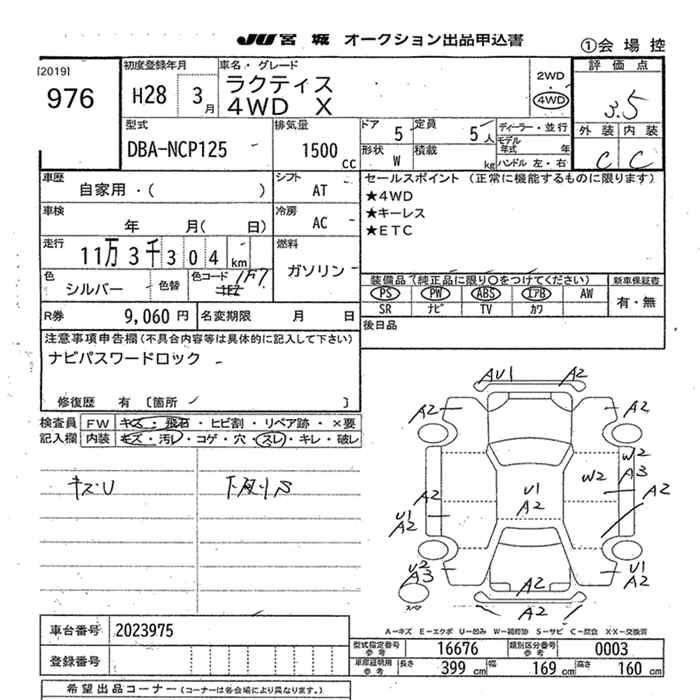 JU 宮城 オークション出品申込書
①会場控
[2019]
976
初度登録年月
H28 3月
車名・グレード
ラクティス
4WD X
2WD
・
4WD
評価点
3.5
外装 内装
C C
型式
DBA-NCP125
排気量
1500 cc
ドア 5
定員 5人
形状 W
積載 kg
ディーラー・並行
モデル年式 年
ハンドル 左・右
車歴
自家用・( )
シフト
AT
車検
年 月( 日)
冷房
AC
走行
11万3千304km
燃料
ガソリン
色
シルバー
色替
色コード
1F7
R券 9,060円
名変期限 月 日
セールスポイント (正常に機能するものに限ります)
★4WD
★キーレス
★ETC
装備品(純正品に限り○をつけてください)
新車保証書
PS PW ABS エアB AW
有・無
SR ナビ TV カワ
後日品
注意事項申告欄(不具合内容等は具体的に記入して下さい)
ナビパスワードロック
修復歴 有 [箇所 ]
検査員 FW キズ・飛石・ヒビ割・リペア跡・×要
記入欄 内装 キズ・汚レ・コゲ・穴・スレ・キレ・破レ
キズU
下廻りS
AU1 A2
A2 A2
W2
W2 A3
A2 U1 A2 A2
U1 A2
U2 A3 U1 A2
A2
スペア A2
A―キズ E―エクボ U―凹み W―補修跡 S―サビ C―腐食 XX―交換済
車台番号 2023975
登録番号
型式指定番号 参考 16676
類別区分番号 参考 0003
車庫証明用 参考 長さ 399 cm 幅 169 cm 高さ 160 cm
希望出品コーナー (コーナーは各会場により異なります。)